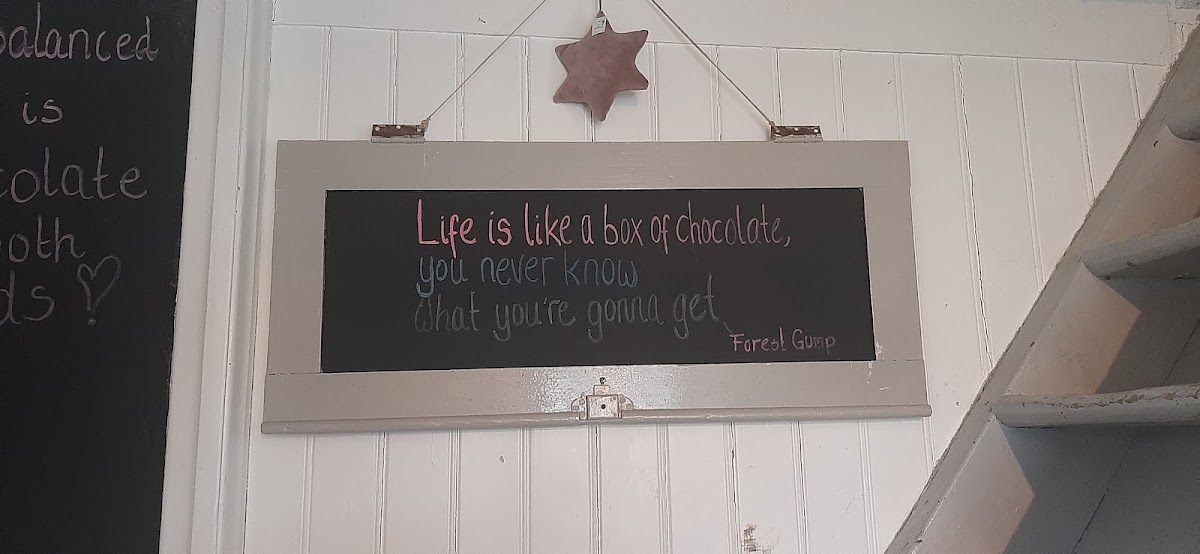 balanced
is
colate
oth
ds
Life is like a box of chocolate,
you never know
what you're gonna get
Forest Gump